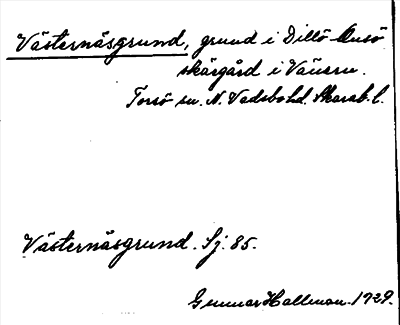 Västernäsgrund, grund i Dillö-Onsö
skärgård i Vänern.
Torsö sn. N. Vadsbo hd. Skarab. l.
Västernäsgrund. Sj. 85.
Gunnar Hallman. 1929.